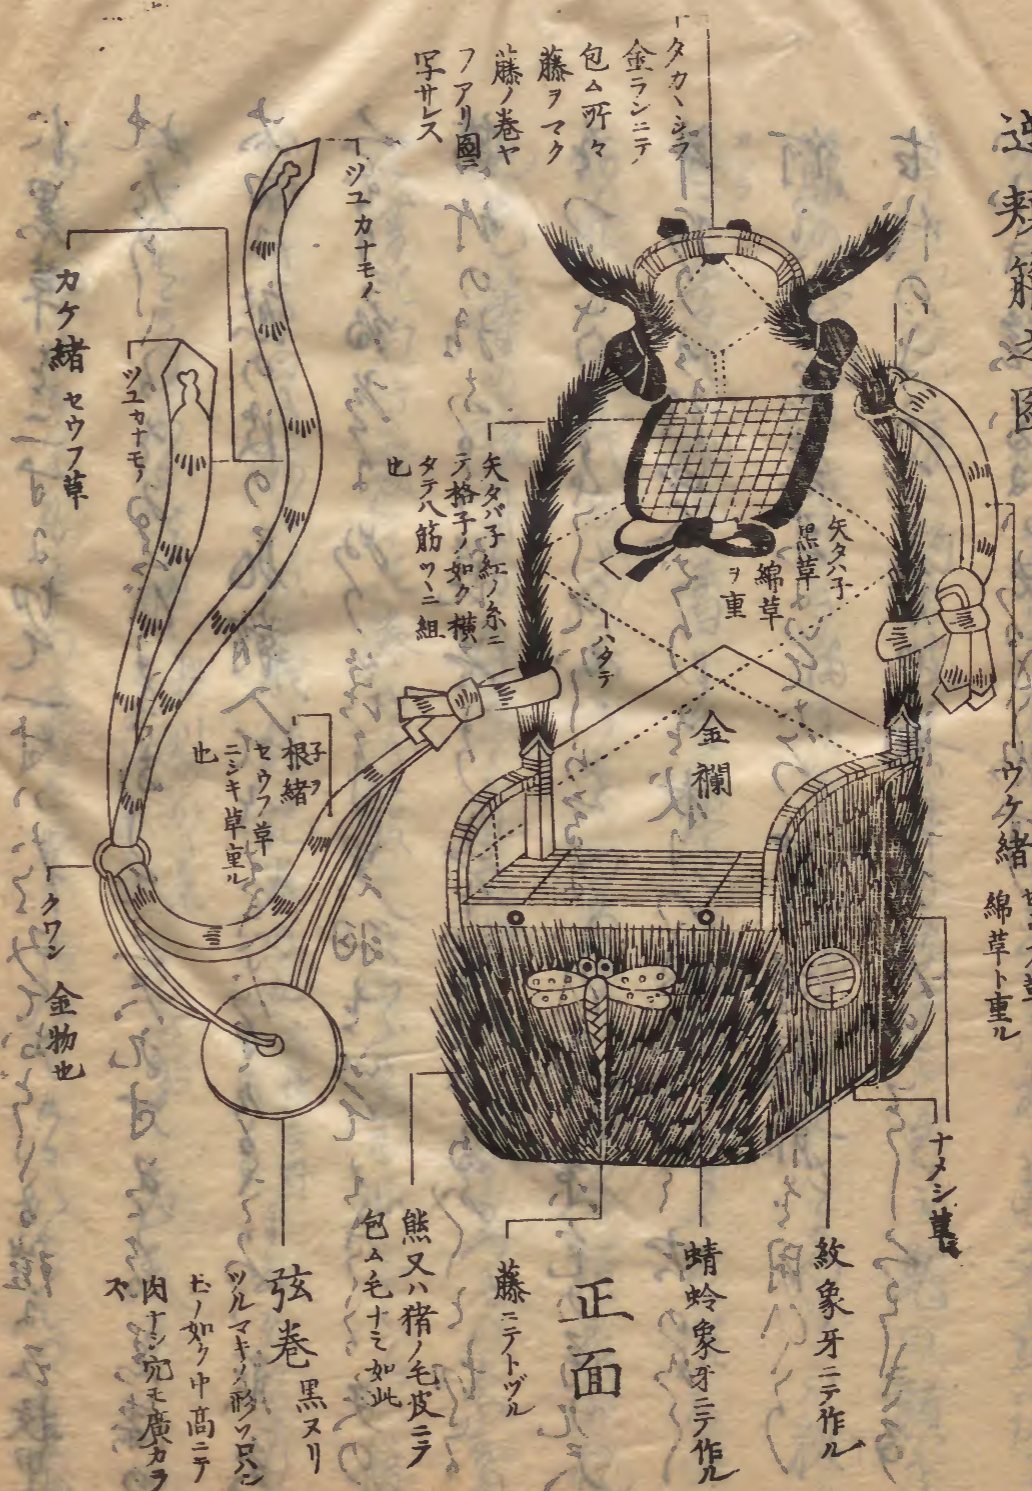 逆頬箙之図
タカヽシラ
金ランニテ
包ム所々
藤ヲマク
藤ノ巻ヤ
フアリ圖ニ
写サレス
ツユカナモノ
カケ緒 セウフ草
ツユカナモノ
矢タバ子紅ノ糸ニ
テ格子ノ如ク横
タテ八筋ツヽニ組
也
矢タハ子
黒草
綿草
ヲ重
ハタテ
金襴
ウケ緒
綿草ト重ル
子ヲ
根緒
セウフ草
ニシキ草重ル
也
クワン 金物也
ナメシ草
紋象牙ニテ作ル
蜻蛉象牙ニテ作ル
正面
藤ニテトヅル
熊又ハ猪ノ毛皮ニテ
包ム毛ナミ如此
弦巻 黒ヌリ
ツルマキノ形ソロハン
ノ如ク中高ニテ
肉ナシ穴モ廣カラ
ズ